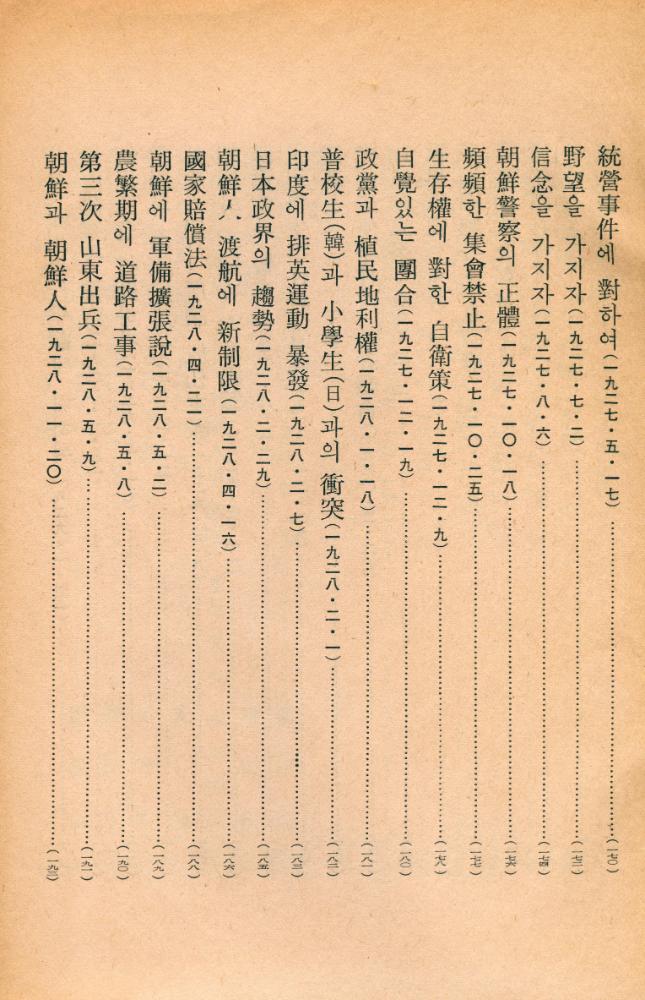 統營事件에 對하여(一九二七·五·一七)……(一七〇)
野望을 가지자(一九二七·七·二)……(一七二)
信念을 가지자(一九二七·八·六)……(一七四)
朝鮮警察의 正體(一九二七·一〇·一八)……(一七六)
頻頻한 集會禁止(一九二七·一〇·二五)……(一七七)
生存權에 對한 自衛策(一九二七·一二·九)……(一七八)
自覺있는 團合(一九二七·一二·一九)……(一八〇)
政黨과 植民地利權(一九二八·一·一八)……(一八一)
普校生(韓)과 小學生(日)과의 衝突(一九二八·二·一)……(一八二)
印度에 排英運動 暴發(一九二八·二·七)……(一八三)
日本政界의 趨勢(一九二八·二·二九)……(一八五)
朝鮮人 渡航에 新制限(一九二八·四·一六)……(一八六)
國家賠償法(一九二八·四·二一)……(一八八)
朝鮮에 軍備擴張說(一九二八·五·二)……(一八九)
農繁期에 道路工事(一九二八·五·八)……(一九〇)
第三次 山東出兵(一九二八·五·九)……(一九一)
朝鮮과 朝鮮人(一九二八·一一·二〇)……(一九三)